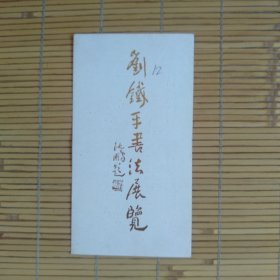 劉鐵平書法展覽
沈鵬題
12